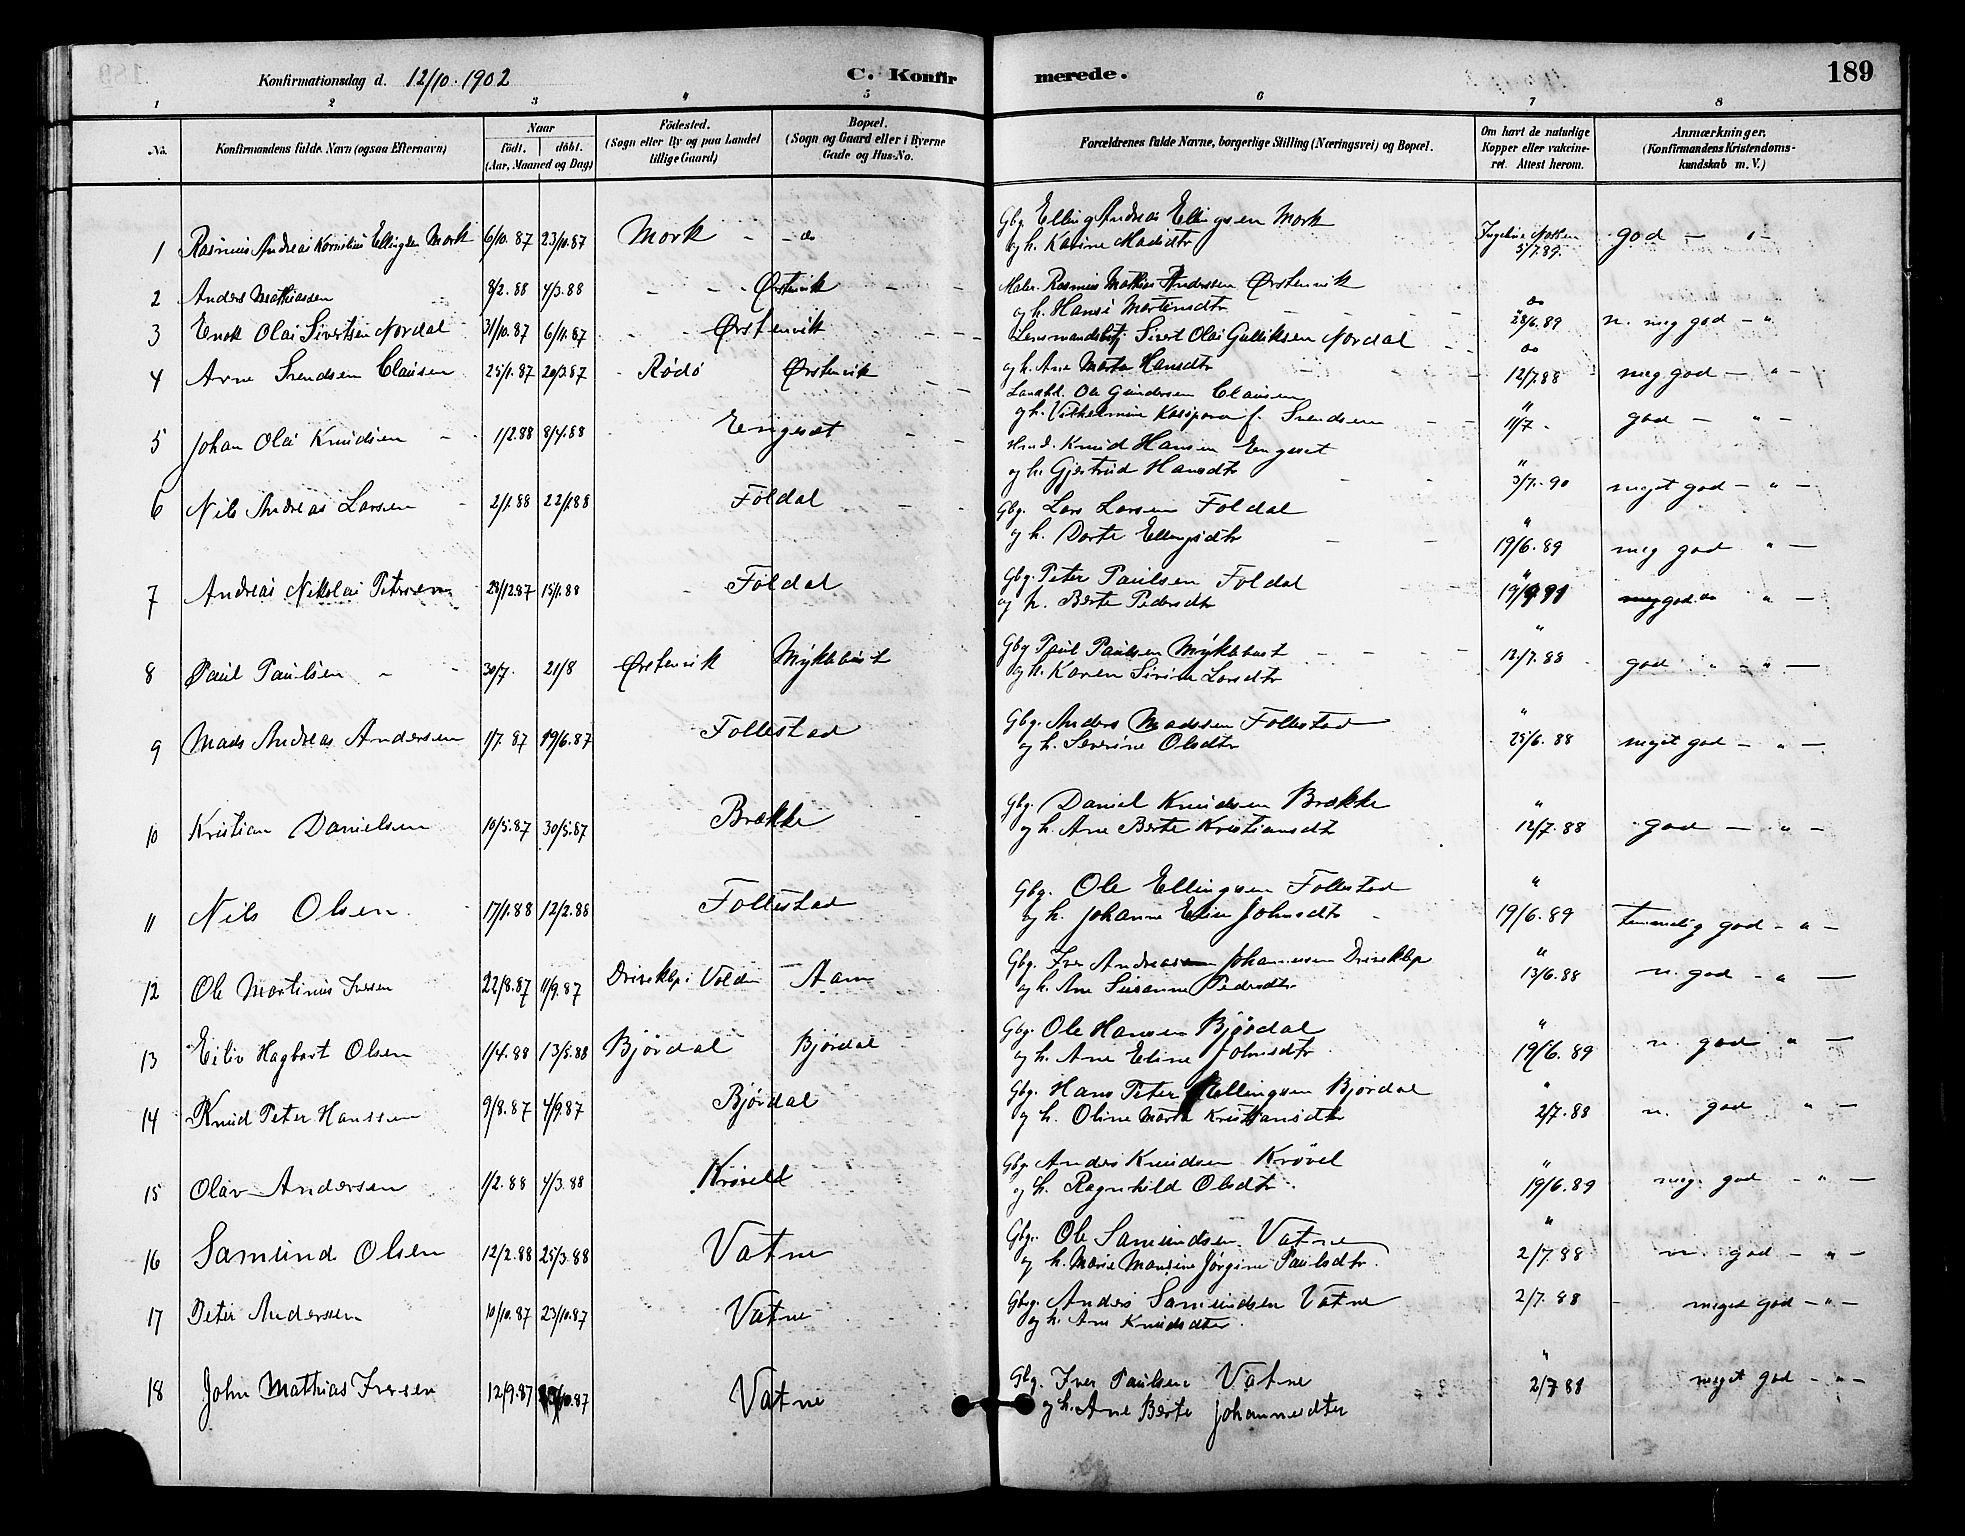 Konfirmationsdag d. 12/10. 1902 C. Konfirmerede. 189
1 2 3 4 5 6 7 8
No. Konfirmandens fulde Navn (ogsaa Efternavn) Naar födt. döbt. (Aar, Maaned og Dag) Födested. (Sogn eller By og paa Landet tillige Gaard) Bopæl. (Sogn og Gaard eller i Byerne Gade og Hus-No. Forældrenes fulde Navne, borgerlige Stilling (Næringsvei) og Bopæl. Om havt de naturlige Kopper eller vakcineret. Attest herom. Anmærkninger. (Konfirmandens Kristendomskundskab m. V.)
1 Rasmus Andreas Kornelius Ellingsen Mork 6/10. 87 23/10.87 Mork - - do Gbg. Elling Andreas Ellingsen Mork
og h. Karine Madsdtr 5/7.89. god - " -
2 Anders Mathiassen 8/2.88 4/3.88 - - Ørstenvik - - Maler Rasmus Mathias Andersen Ørstenvik
og h. Hansi Martinsdtr do 28/6.89 n. meg god - "
3 Enok Olai Sivertsen Nordal 31/10.87 6/11.87 - - Ørstenvik - - Lensmandsbetj Sivert Olai Gulliksen Nordal
og h. Ane Marta Hansdtr do 12/7.88 meg god - " -
4 Arne Svendsen Clausen 25/1.87 20/3.87 Rödö Ørstenvik - - Landhd. Ole Gundersen Clausen
og h. Vilhelmine Kaspara f. Svendsen " 11/7 - god - " -
5 Johan Olai Knudsen - 1/2.88 8/4.88 Engeset - - Hmd. Knud Hansen Engeset
og h. Gjertrud Hansdtr " 3/7.90 meget god - " -
6 Nils Andreas Larsen 2/1.88 22/1.88 Foldal - - Gbg. Lars Larsen Foldal
og h. Dorte Ellingsdtr " 19/6.89 meg god " -
7 Andreas Nikolai Petersen 28/12.87 15/1.88 - Foldal Gbg. Peter Paulsen Foldal
og h. Berte Pedersdtr god " -
8 Paul Paulsen - - 30/7. 21/8 Ørstenvik Myklebust Gbg Paul Paulsen Myklebust
og h. Karen Sivine Larsdtr " 12/7.88 god " - " -
9 Mads Andreas Andersen 1/7. 87 19/6.87 Follestad Gbg. Anders Madssen Follestad
og h. Severine Olsdtr " 25/6.88 meget god - " -
10 Kristian Danielsen 10/5.87 30/5.87 Brække Gbg. Daniel Knudsen Brække
og h. Ane Berte Kristiansdtr " 12/7.88 god - " -
11 Nils Olsen 17/1.88 12/2.88 Follestad Gbg. Ole Ellingsen Follestad
og h. Johanne Eline Johnsdtr - " 19/6.89 temmelig god - " -
12 Ole Martinus Iversen 22/8.87 11/9.87 Driveklep i Volden Aam Gbg. Iver Andreas Johannesen Driveklep
og h. Ane Susanne Pedersdtr " 13/6.88 n. god - " -
13 Eiliv Hagbart Olsen 1/4.88 13/5.88 Bjørdal Bjørdal Gbg. Ole Hansen Bjørdal
og h. Ane Eline Johnsdtr " 19/6.89 n. god " -
14 Knud Peter Hanssen 9/8.87 4/9.87 Bjørdal Gbg. Hans Peter Ellingsen Bjørdal
og h. Oline Marta Kristiansdtr " 2/7.88 n. god " -
15 Olav Andersen 1/2.88 4/3.88 Krøvell Gbg. Anders Knudsen Krövel
og h. Ragnhild Olsdtr. " 19/6.89 meg. god - " -
16 Samund Olsen 12/2.88 25/3.88 Vatne Gbg. Ole Samundsen Vatne
og h. Marie Mansine Jørgine Paulsdtr. " 2/7.88 m. god - " -
17 Peter Anderssen 10/10.87 23/10.87 Vatne Gbg. Anders Samundsen Vatne
og h. Ane Knudsdter. 2/7.88 - meget god - " -
18 John Mathias Iversen 12/9.87 Vatne Gbg. Iver Paulsen Vatne
og h. Ane Berte Johannesdter " 2/7 88 meget god - " -